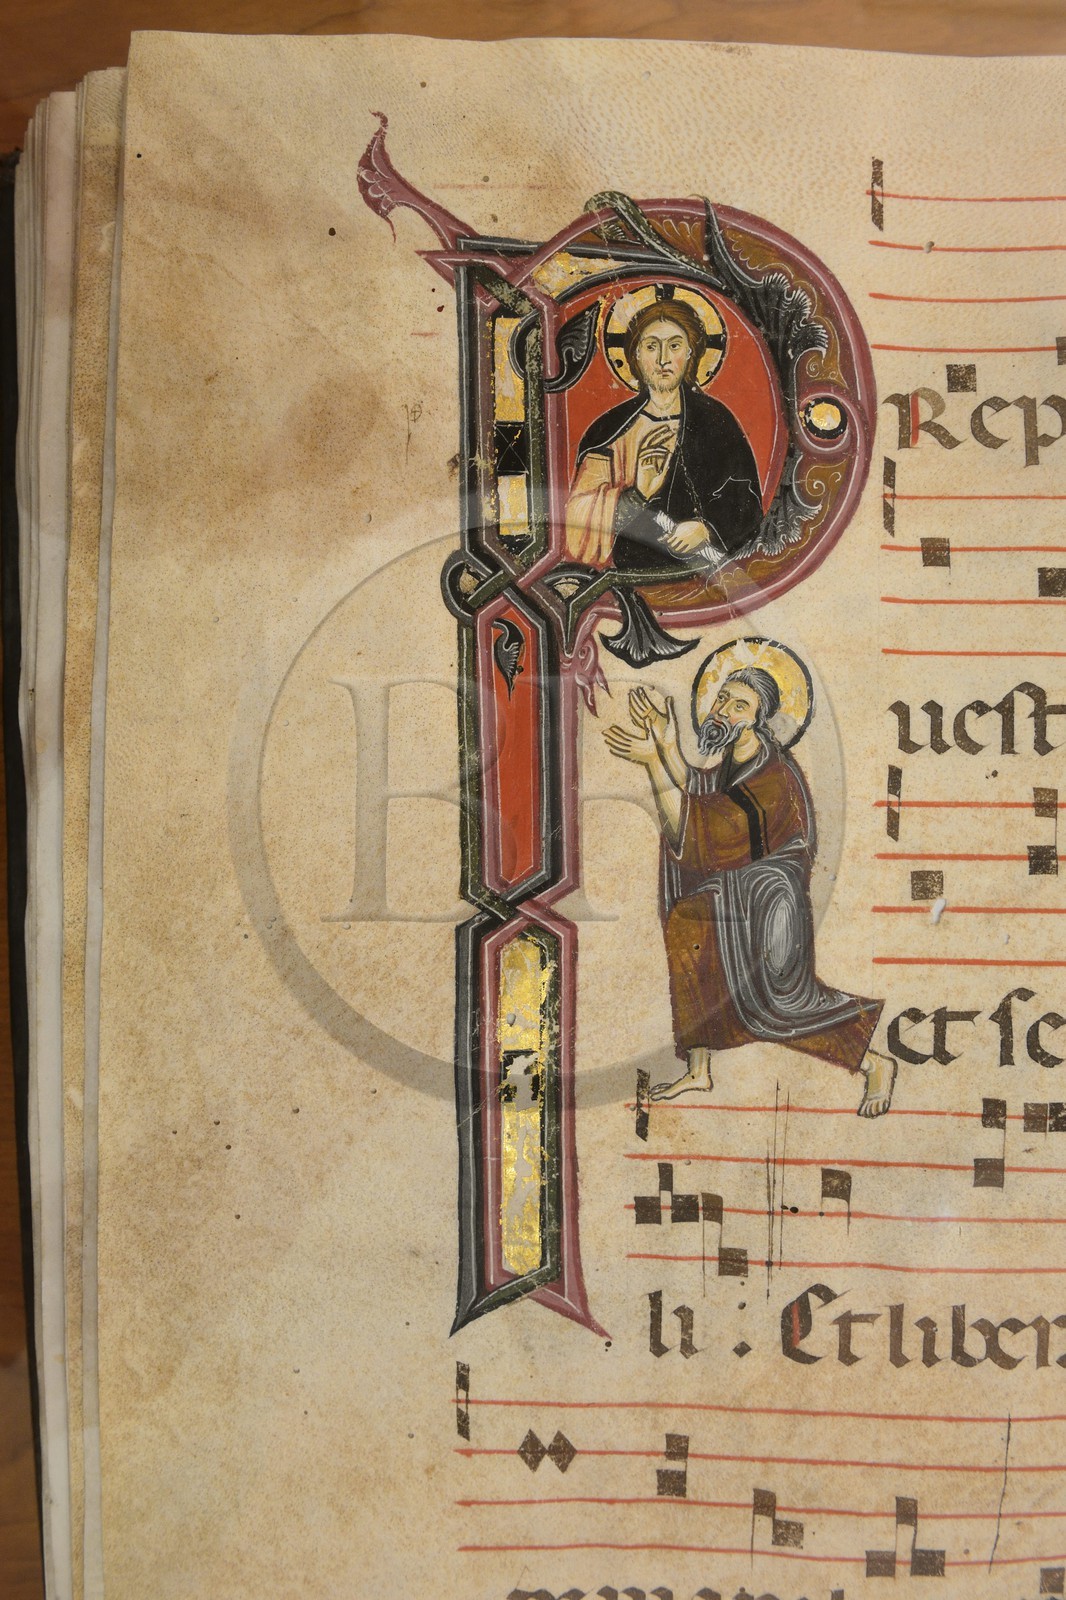 Rep
uest
et se
li. Et liber